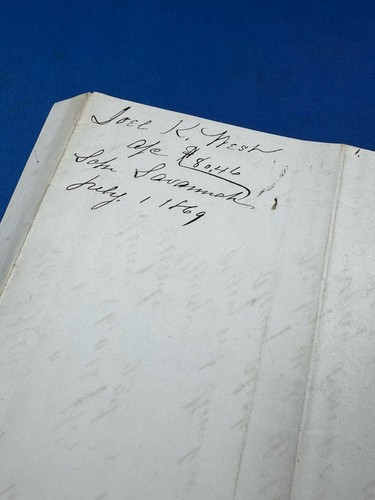 Joel K. West
a/c $80.46
Savannah
July, 1 1869